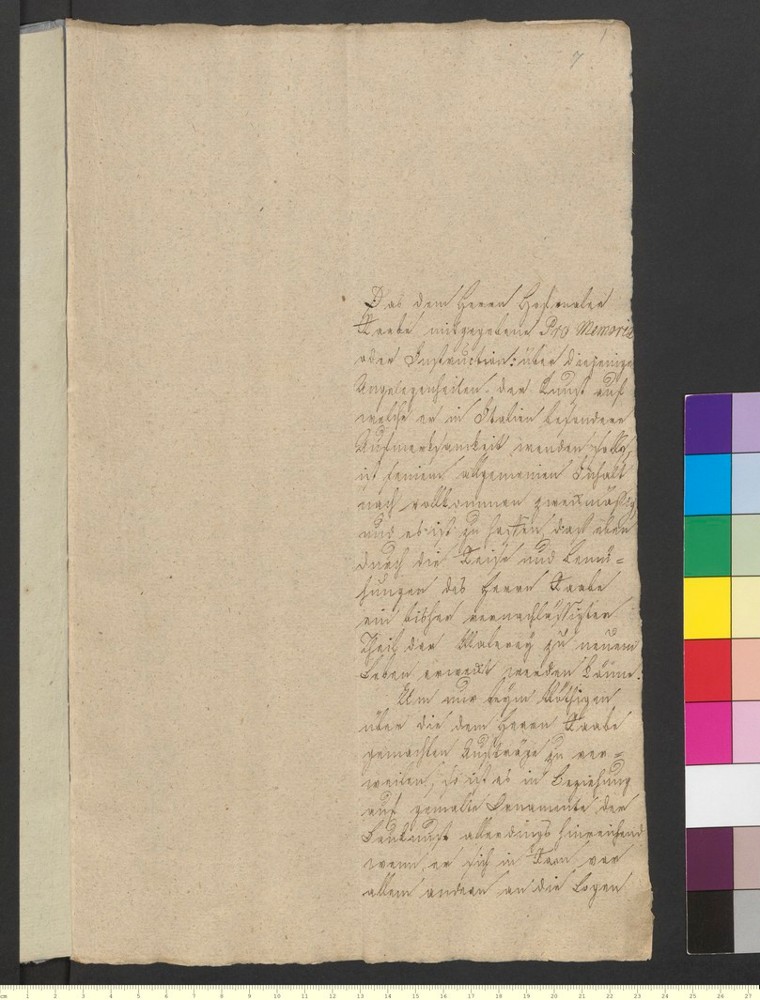 7
Das dem Herrn Hofmaler
Raabe mitgegebene Pro Memoria
oder Instruction: über diejenige
Angelegenheiten der Kunst auf
welche er in Italien besondere
Aufmerksamkeit wenden solle,
ist seinem allgemeinen Inhalt
nach vollkommen zweckmäßig
und es ist zu hoffen, daß eben
durch die Reise und Bemü=
hungen des Herrn Raabe
ein bisher vernachläßigter
Theil der Malerey zu neuem
Leben erweckt werden könne.
Um nur beym Nöthigen
über die dem Herrn Raabe
gemachten Aufträge zu ver=
weilen, so ist es in Beziehung
auf gemalte Ornamente der
Baukunst allerdings hinreichend
wenn er sich in Rom vor
allem andern an die Logen